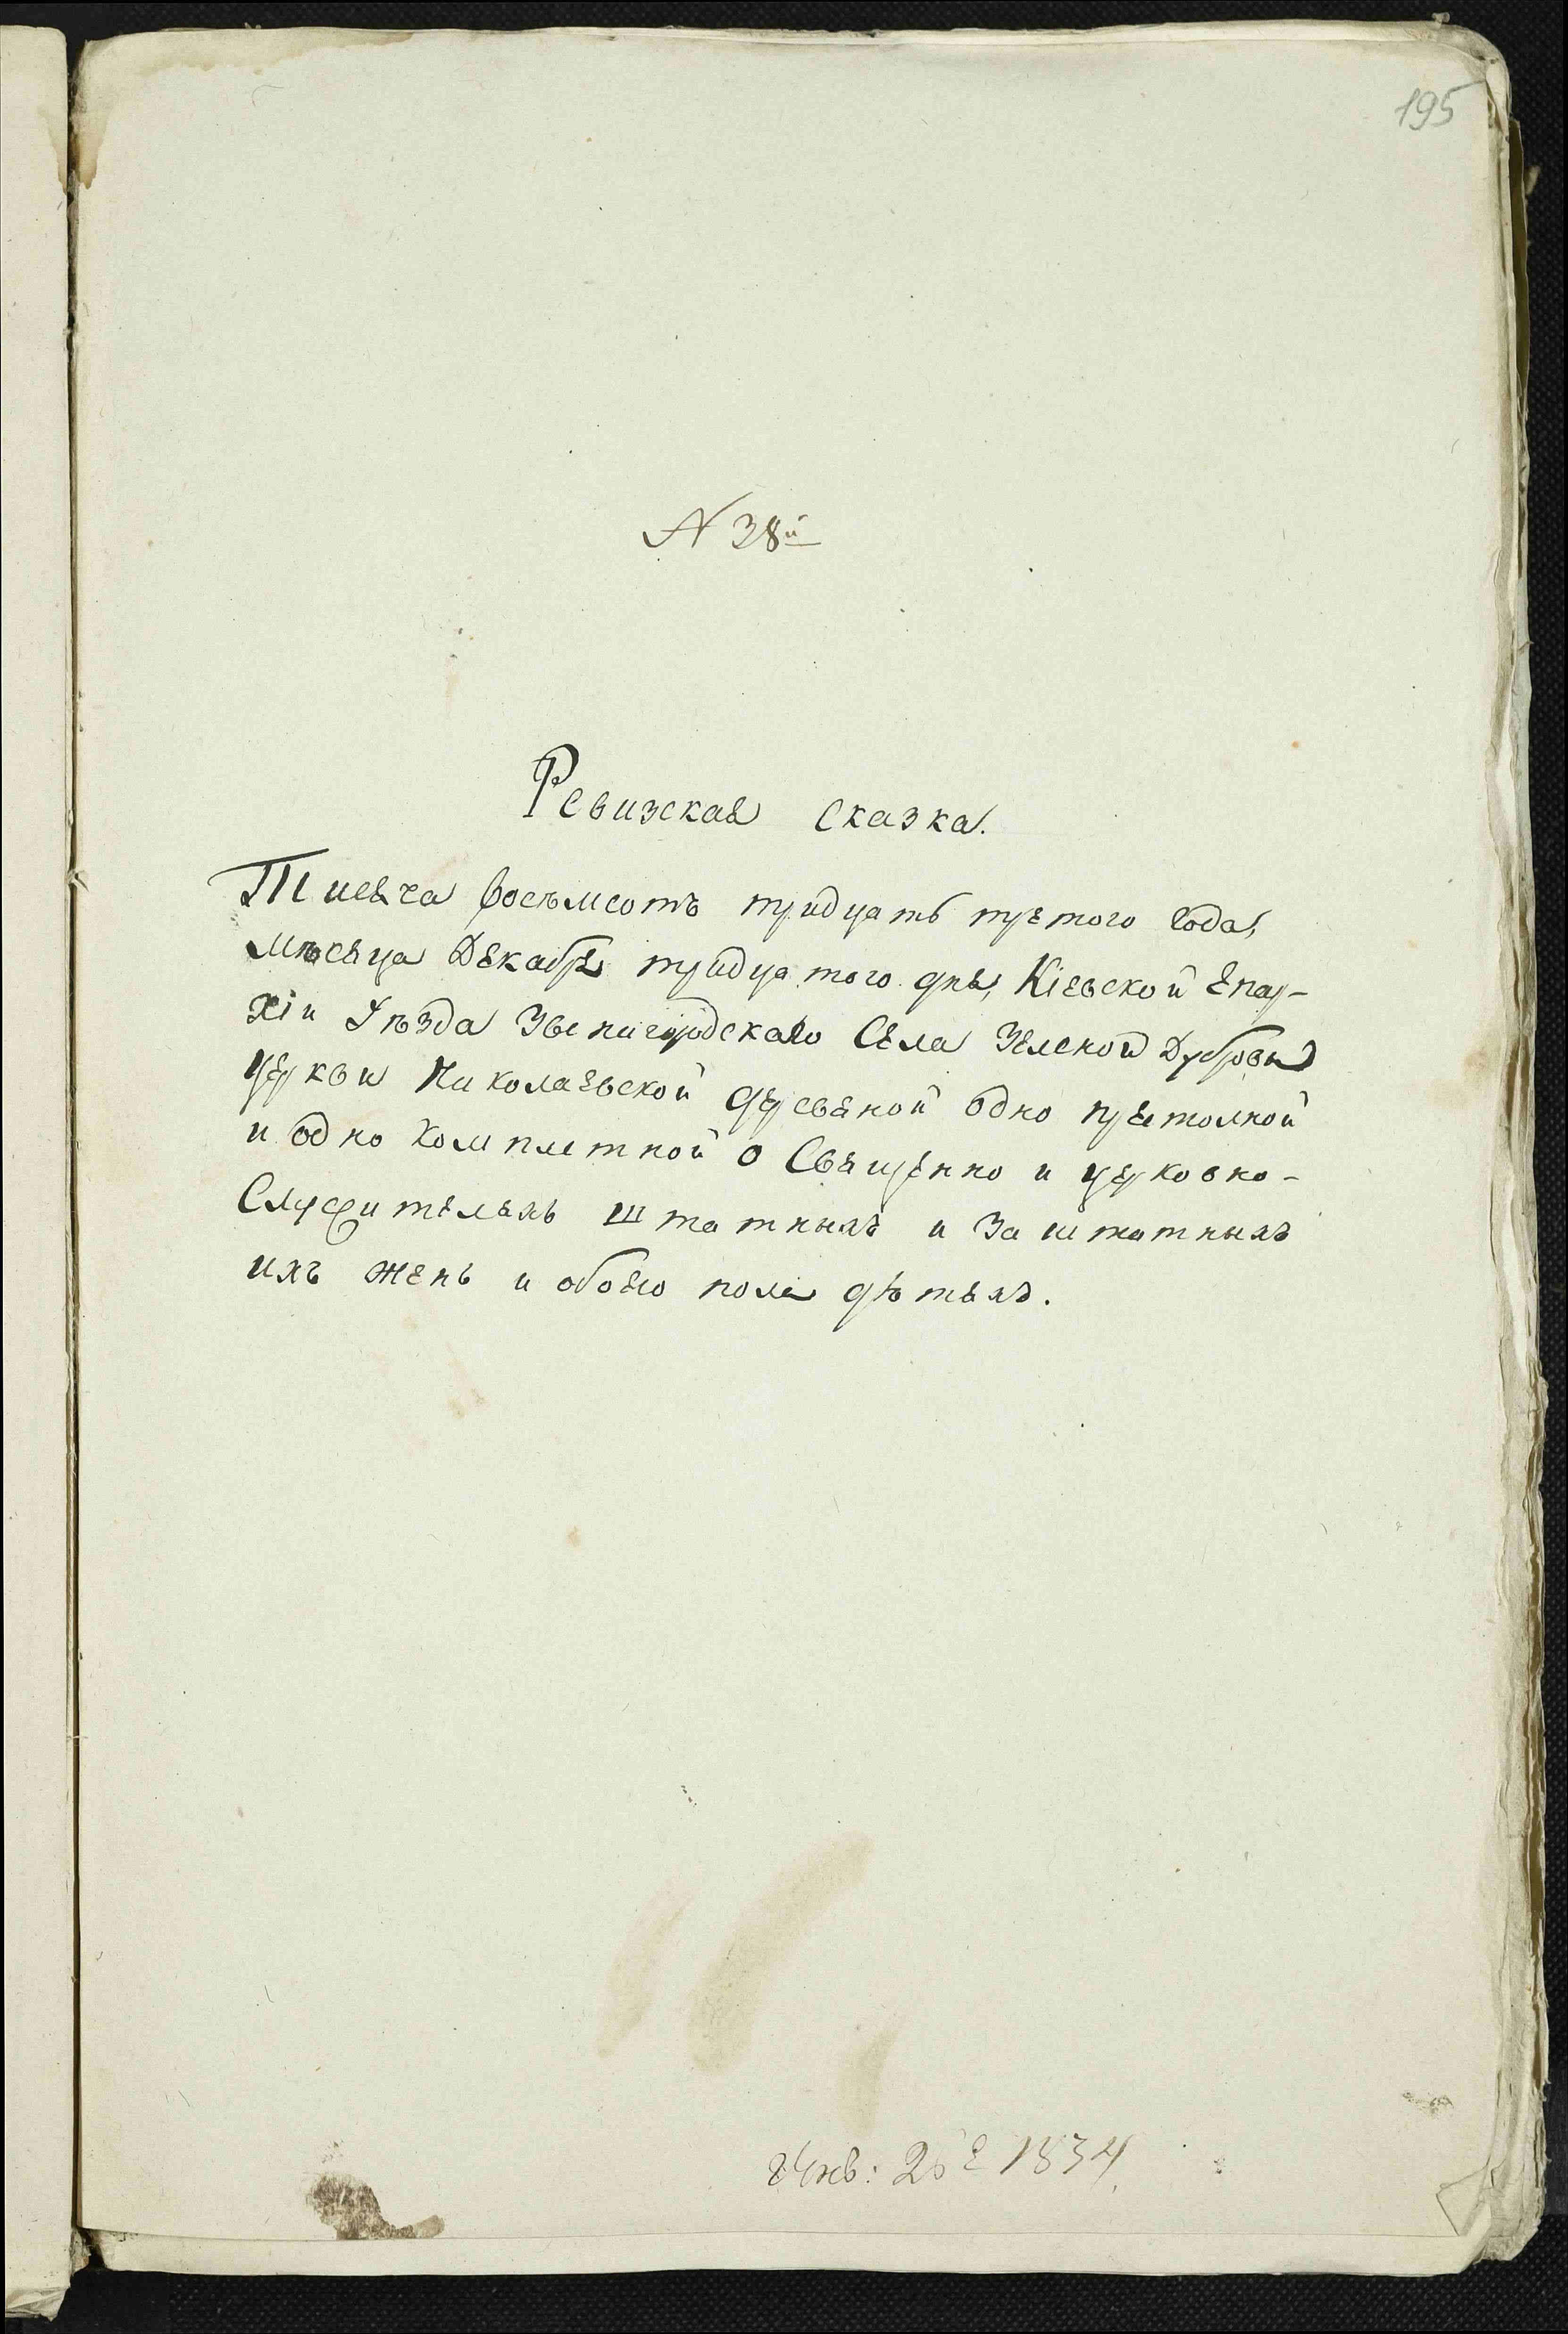 195
N 38й
Ревизская сказка.
Тисяча восѣмсотъ тридцать третого года,
мѣсяца Декабря тридцатого дня, Кіевской Епар-
хіи Уѣзда Звенигородскаго Села Зеленой Дубровы
церкви Николаевской деревяной одно престолной
и одно комплетной о Священно и церковно-
Служителяхъ штатныхъ и Заштатныхъ
ихъ женъ и обоего пола дѣтяхъ.
Янв: 1834